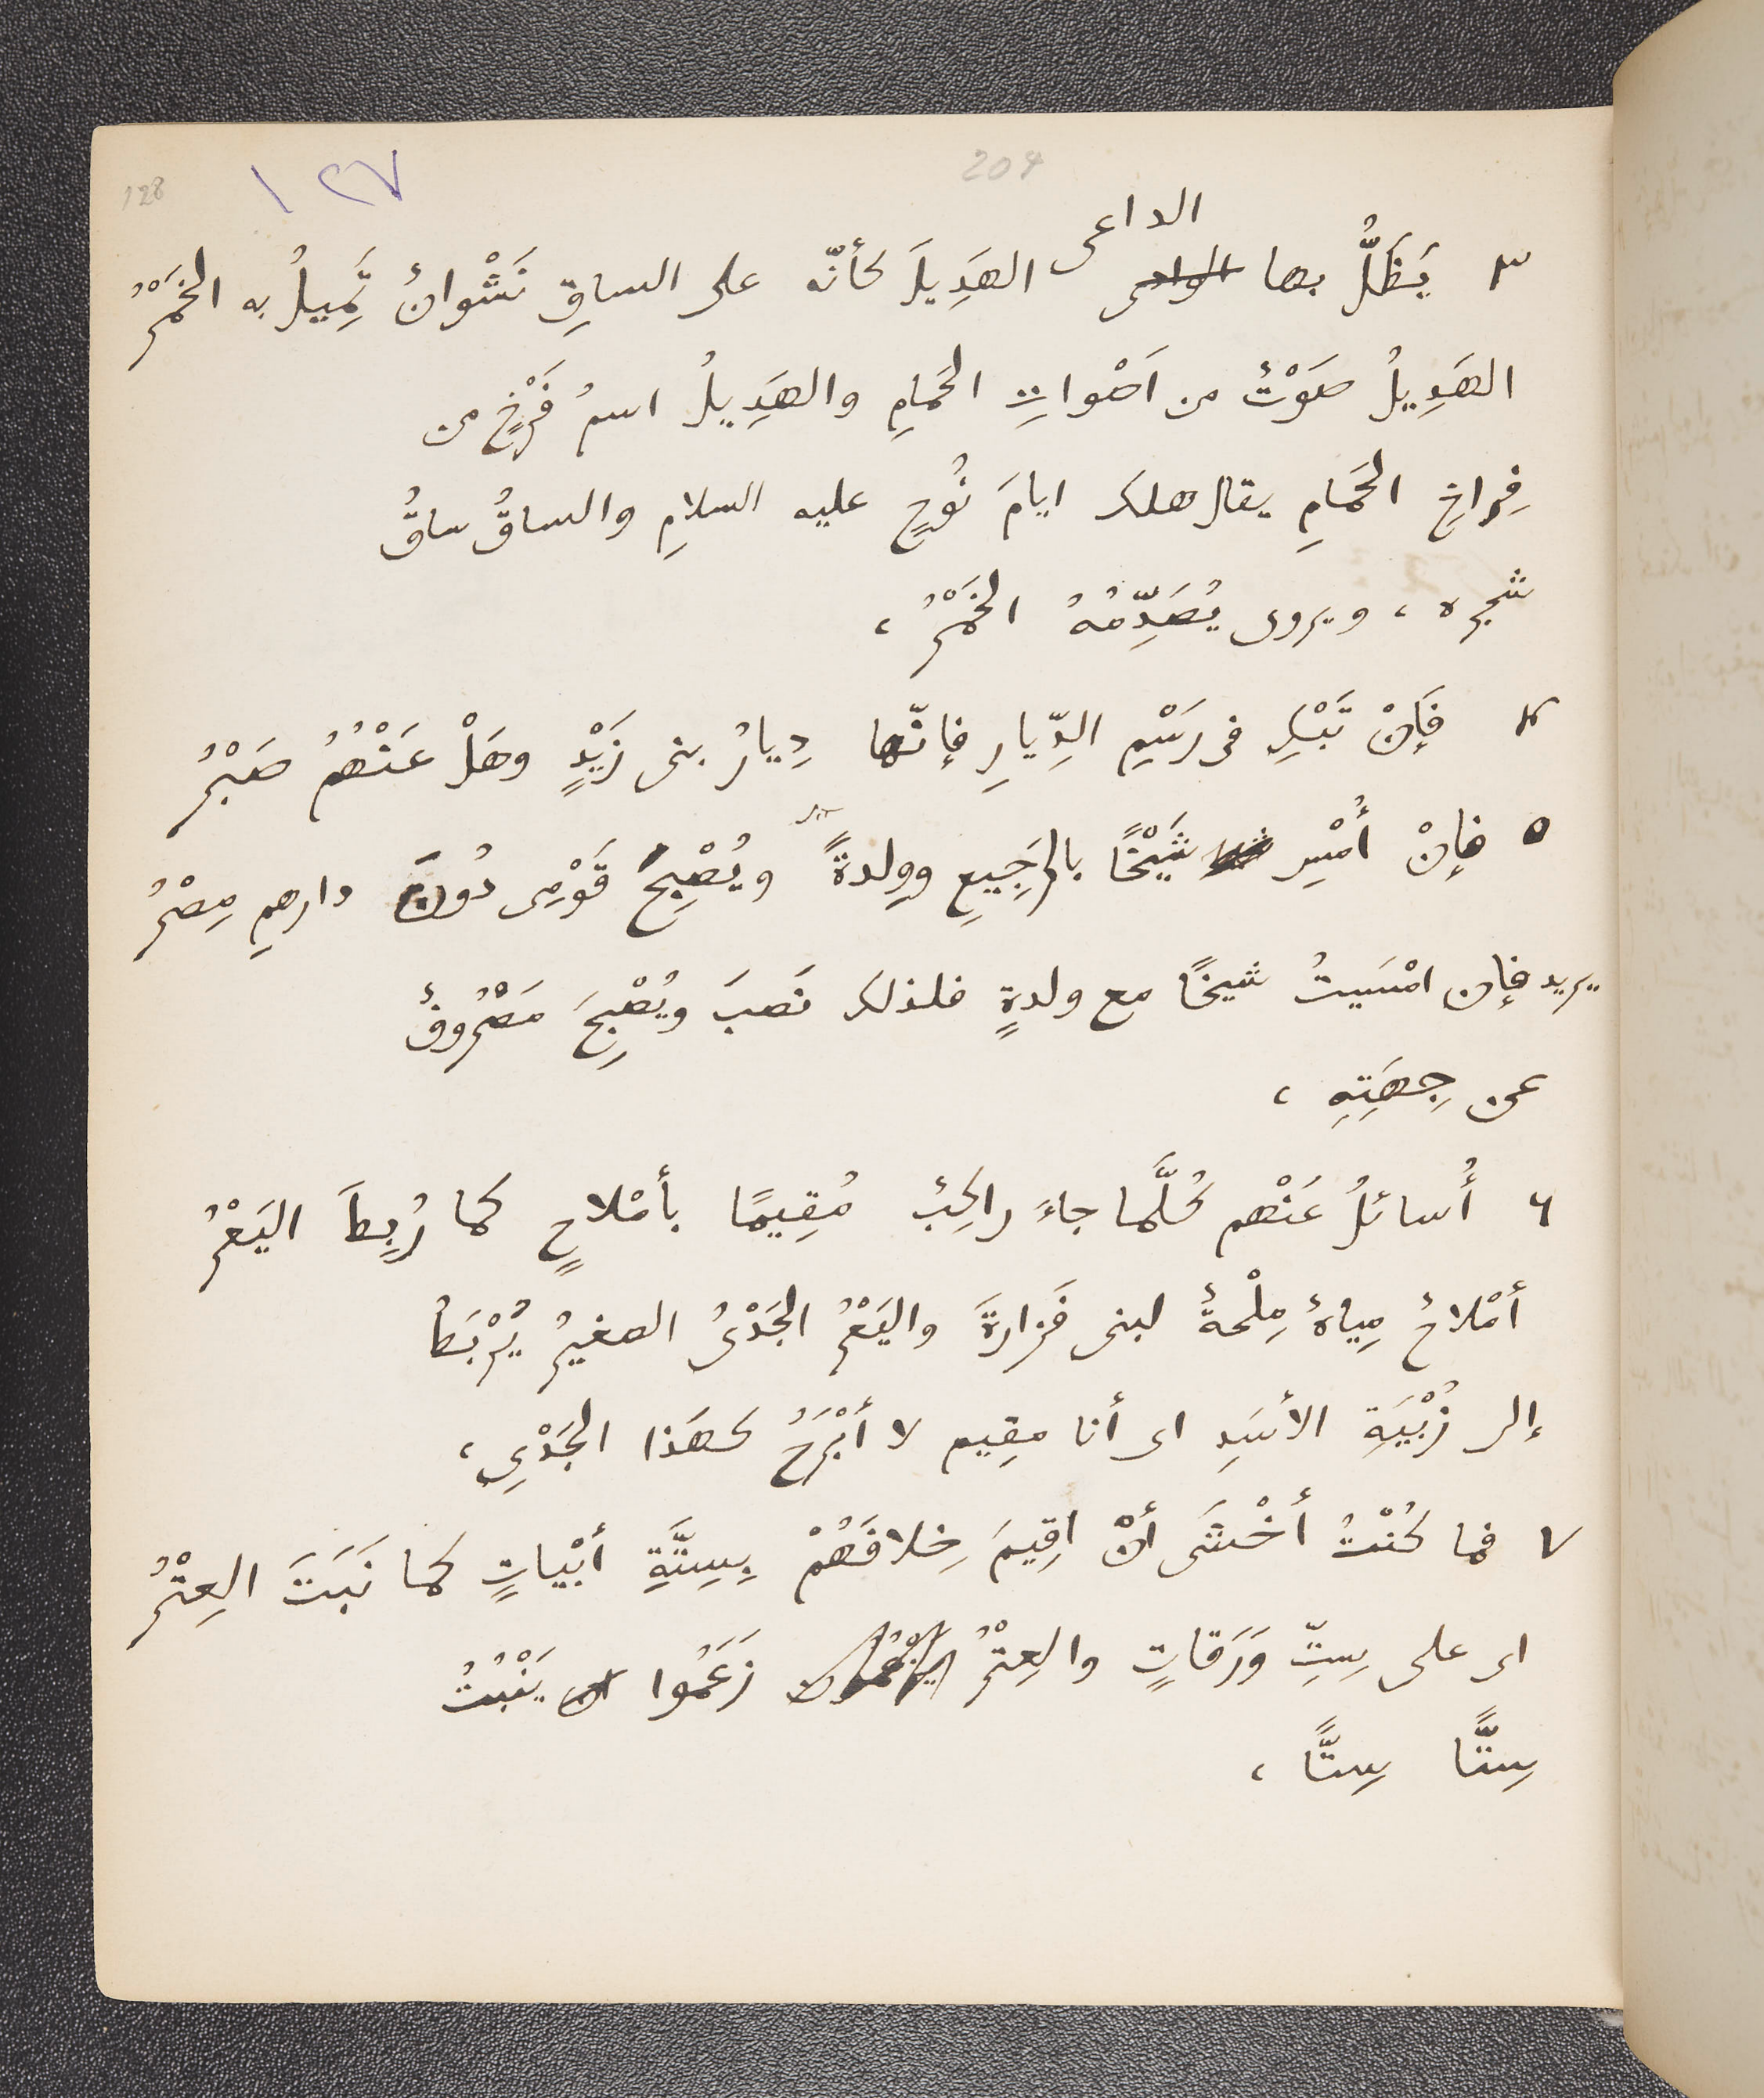 128
١٢٧
204
الداعى
٣ يَظَلُّ بها الوادى الهَدِيلَ كأنّه على الساقِ نَشْوانٌ تَمِيلُ به الخَمْرُ
الهَدِيلُ صَوْتٌ من اَصْواتِ الحَمامِ والهَدِيلُ اسمُ فَرْخٍ من
فِراخِ الحَمامِ يقال هلك ايامَ نُوحٍ عليه السلامِ والساقُ ساقُ
شجره ، ويروى يُصَدِّمُهُ الخَمْرُ ،
٤ فَإنْ تَبْكِ فى رَسْمِ الدِّيارِ فإنّها دِيارُ بنى زَيْدٍ وهَلْ عَنْهُمُ صَبْرُ
٥ فإنْ أُمْسِ شَيْخًا بالرَجِيعِ ووِلدةً ويُصْبِحُ قَوْمِى دُونَ دارهمِ مِصْرُ
يريد فإن امْسَيتُ شيخًا مع ولدةٍ فلذلك نَصبَ ويُصْبِحَ مَصْرُوفٌ
عن جِهَتِهِ ،
٦ أُسائلُ عَنْهم كُلَّما جاءَ راكِبٌ مُقِيمًا بأمْلاحٍ كما رُبِطَ اليَعْرُ
أمْلاحٌ مِياهٌ مِلْحةٌ لبنى فَزارةَ واليَعْرُ الجَدْىُ الصغيرُ يُرْبَطُ
إلى زُبْيَةِ الأسَدِ اى أنا مقِيم لا أبْرَحُ كهَذا الجَدْىِ ،
٧ فما كُنْتُ أخْشَى أنْ اقِيمَ خِلافَهُمْ بِسِتَّةِ أبْياتٍ كما نَبَتَ العِتْرُ
اى على سِتِّ وَرَقاتٍ والعِتْرُ زَعَمُوا ينْبُتُ
سِتًّا سِتًّا ،